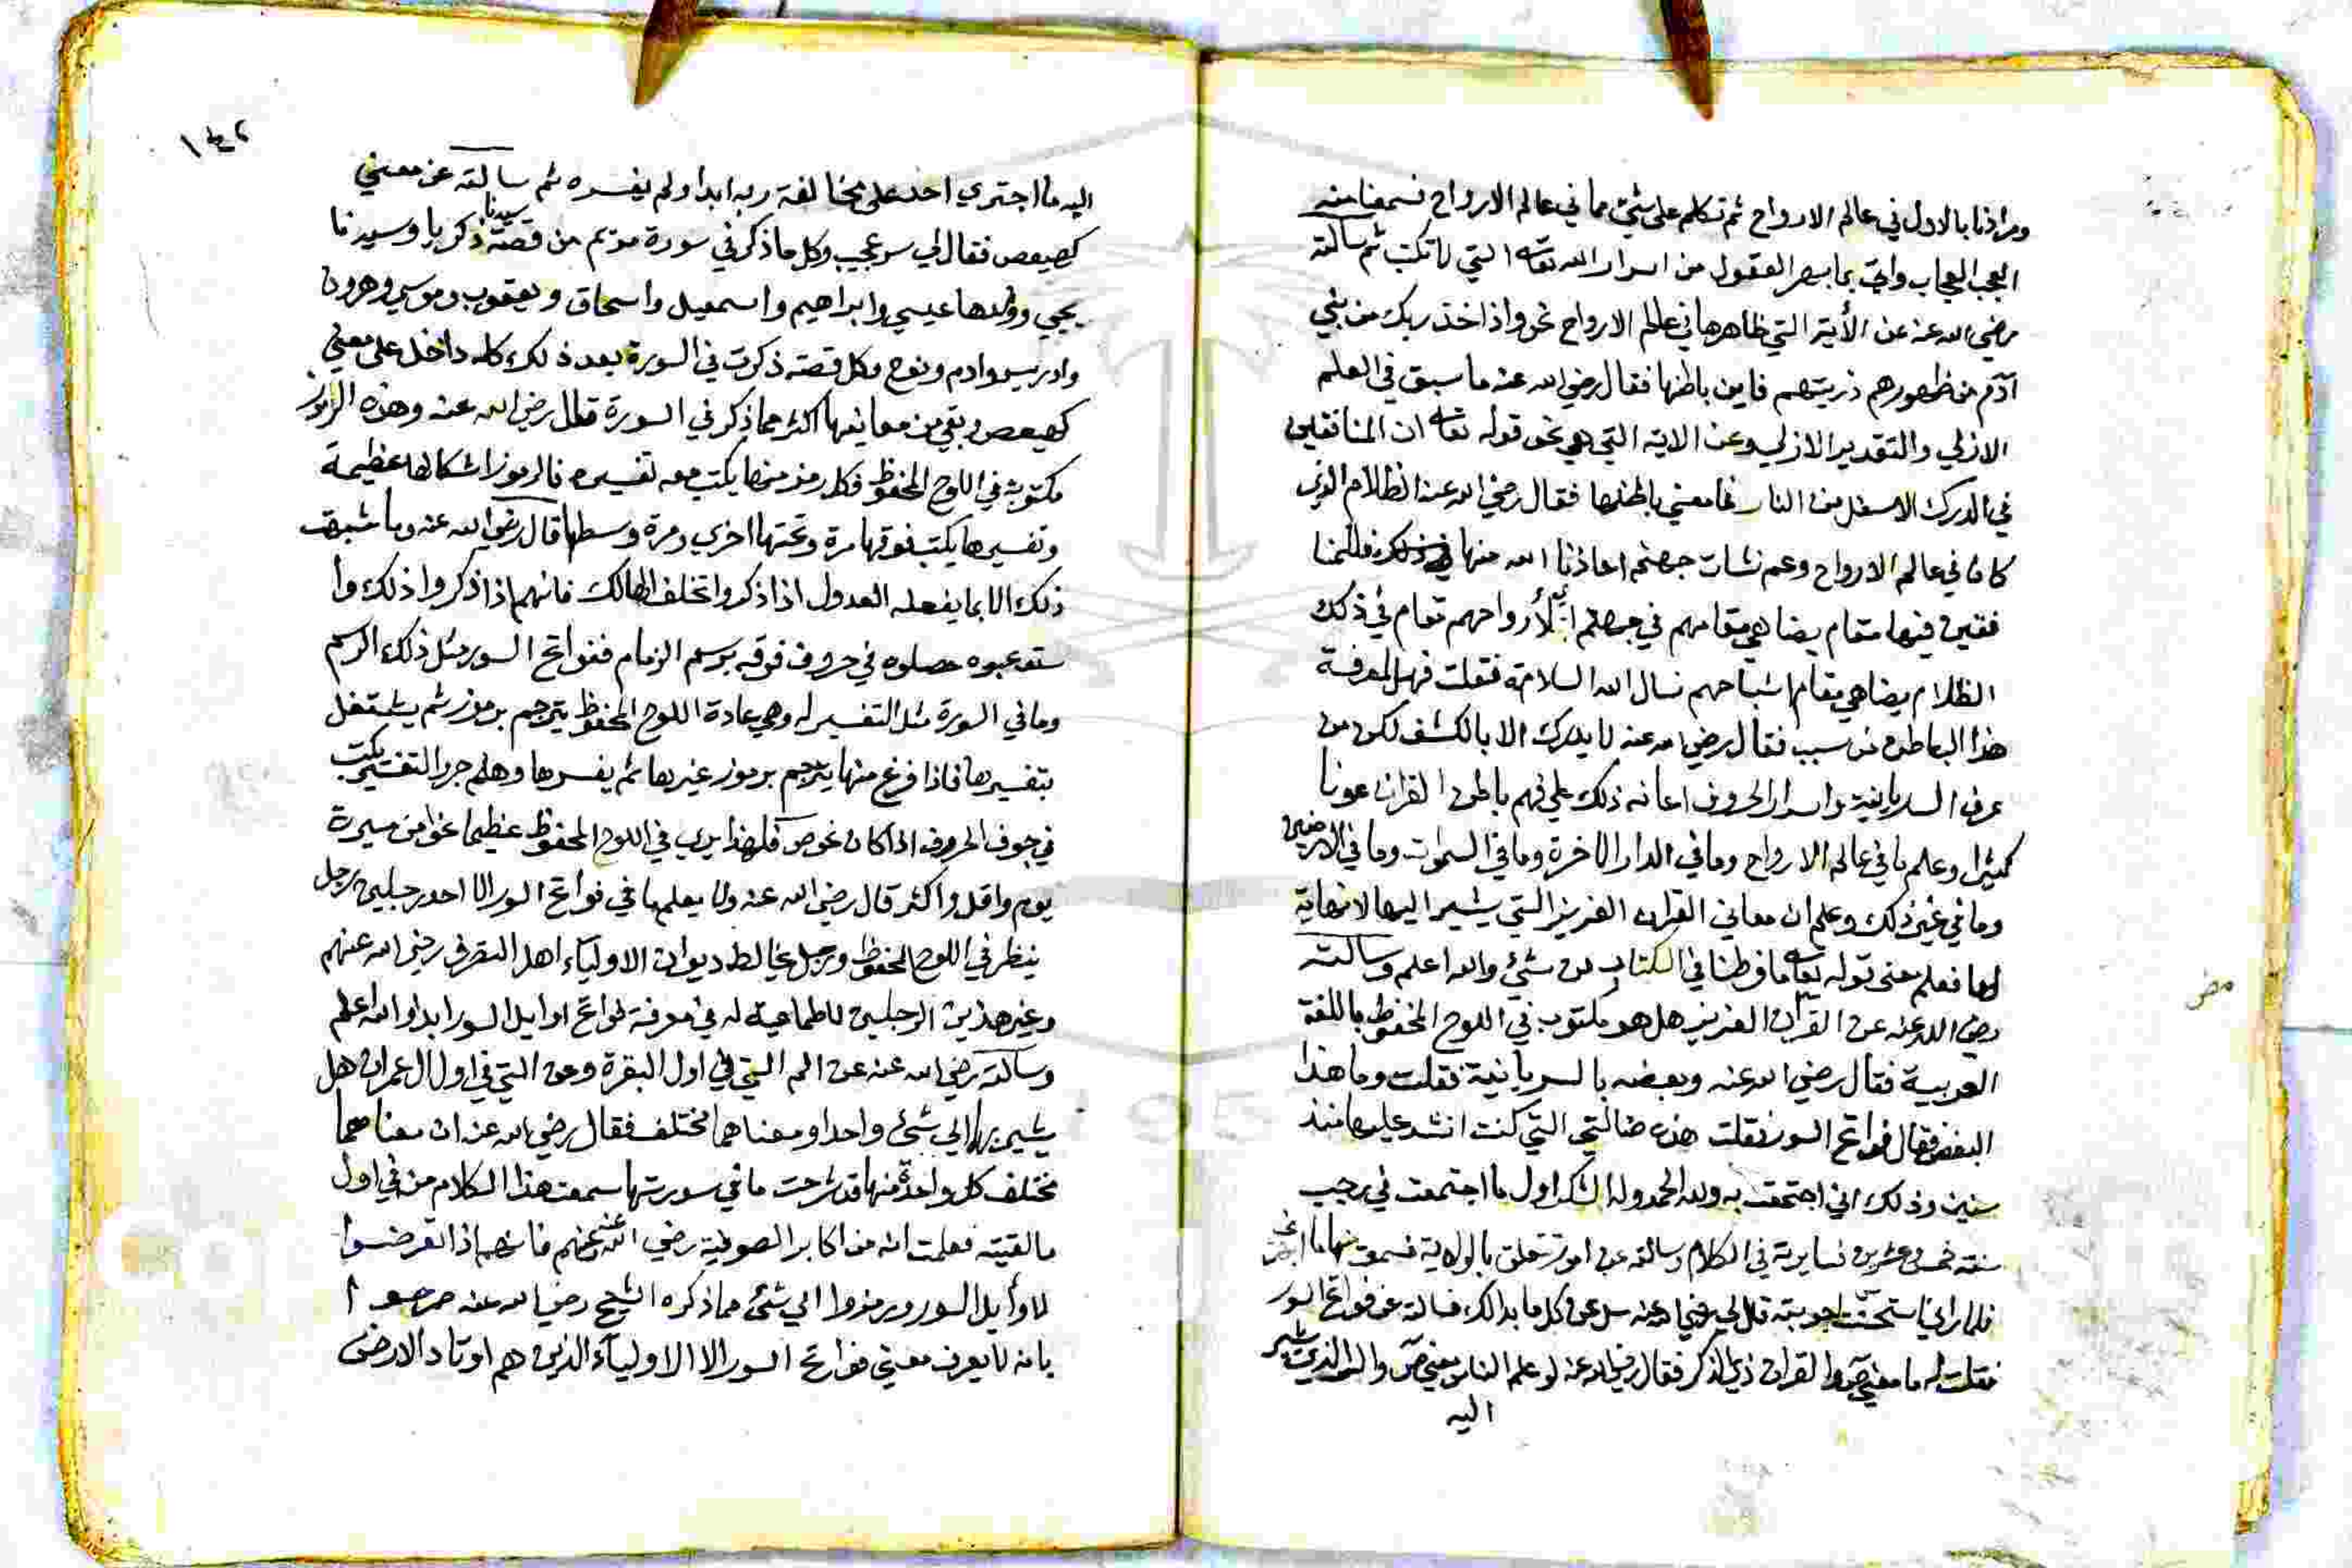 ومرادنا بالاول في عالم الارواح ثم تكلم على شيء مما في عالم الارواح فسمعنا منه
العجب العجاب واتى بما يبهر العقول من اسرار الله تعالى التي لا تكتب ثم سالته
رضي الله عنه عن الأية التي ظاهرها في عالم الارواح نحو واذ اخذ ربك من بني
آدم من ظهورهم ذريتهم فاين باطنها فقال رضي الله عنه ما سبق في العلم
الازلي والتقدير الازلي وعن الاية التي هي نحو قوله تعالى ان المنافقين
في الدرك الاسفل من النار فما معنى باطنها فقال رضي الله عنه الظلام الذي
كان في عالم الارواح وعم نشات جهنم اعاذنا الله منها ذلك فللمنا
فقين فيها مقام يضاهي مقامهم في جهنم لأرواحهم مقام في ذلك
الظلام يضاهي مقام اشباحهم نسال الله السلامة فقلت فهل لمعرفة
هذا الباطن من سبب فقال رضي الله عنه لا يدرك الا بالكشف لكن من
عرف السريانية واسرار الحروف اعانه ذلك على فهم باطن القران عونا
كثيرا وعلم ما في عالم الارواح وما في الدار الاخرة وما في السموات وما في الارضين
وما في غير ذلك وعلم ان معاني القران العزيز التي يشير اليها لا نهاية
لها فعلم معنى قوله تعالى ما فرطنا في الكتاب من شيء والله اعلم وسالته
رضي الله عنه عن القرآن العزيز هل هو مكتوب في اللوح المحفوظ باللغة
العربية فقال رضي الله عنه وبعضه بالسريانية فقلت وما هذا
البعض فقال فواتح السور فقلت هذه ضالتي التي كنت انشد عليها منذ
سنين وذلك اني اجتمعت به ولله الحمد وله الشكر اول ما اجتمعت في رجب
سنة خمس وعشرين في الكلام وسالته عن امور تتعلق بالولاية فسمعت منها ما
فلما راني استحسنت اجوبته قال لي رضي الله عنه سل عن كل ما بدا لك فسالته عن فواتح السور
فقلت له ما معنى ص والقران ذي الذكر فقال رضي الله عنه لو علم الناس معنى ص والسر الذي يشير
اليه
مص
١٤٢
اليه ما اجترى احد على مخالفة ربه ابدا ولم يفسره ثم سالته عن معنى
كهيعص فقال لي سر عجيب وكل ما ذكر في سورة مريم من قصة سيدنا زكريا وسيدنا
يحيى وولدها عيسى وابراهيم واسمعيل واسحاق ويعقوب وموسى وهرون
وادريس وادم ونوح وكل قصة ذكرت في السورة بعد ذلك كله داخل على معنى
كهيعص وبقي من معانيها اكثر مما ذكر في السورة قال رضي الله عنه وهذه الرموز
مكتوبة في اللوح المحفوظ فكل رمز منها يكتب معه تفسيره فالرموز اشكالها عظيمة
وتفسيرها يكتب فوقها مرة وتحتها اخرى ومرة وسطها قال رضي الله عنه وما شبهت
ذلك الا بما يفعله العدول اذا ذكروا مخلف الهالك فانهم اذا ذكروا ذلك وا
ستوعبوه حصلوه في حروف فوقه برسم الزمام ففواتح السور مثل ذلك الرسم
وما في السورة مثل التفسير له وهي عادة اللوح المحفوظ يترجم برموز ثم يشتغل
بتفسيرها فاذا فرغ منها يترجم برموز غيرها ثم يفسرها وهلم جرا التفسير يكتب
في جوف الحروف اذا كان نحو ص فلهذا يرى في اللوح المحفوظ عظيما نحوا من مسيرة
يوم واقل واكثر قال رضي الله عنه ولا يعلم ما في فواتح السور الا احد رجلين رجل
ينظر في اللوح المحفوظ ورجل يخالط ديوان الاولياء اهل التصرف رضي الله عنهم
وغير هذين الرجلين لا طماعية له في معرفة فواتح اوايل السور ابدا والله اعلم
وسالته رضي الله عنه عن الم التي في اول البقرة وعن التي في اول ال عمران هل
يشير بها الى شيء واحد او معناهما مختلف فقال رضي الله عنه ان معناهما
مختلف كل واحدة منها قد شرحت ما في سورتها سمعت هذا الكلام منه في اول
ما لقيته فعلمت انه من اكابر الصوفية رضي الله عنهم فانهم اذا تعرضوا
لاوايل السور ورمزوا الى شيء مما ذكره الشيخ رضي الله عنه صرحوا
بانه لا يعرف معنى فواتح السور الا الاولياء الذين هم اوتاد الارض